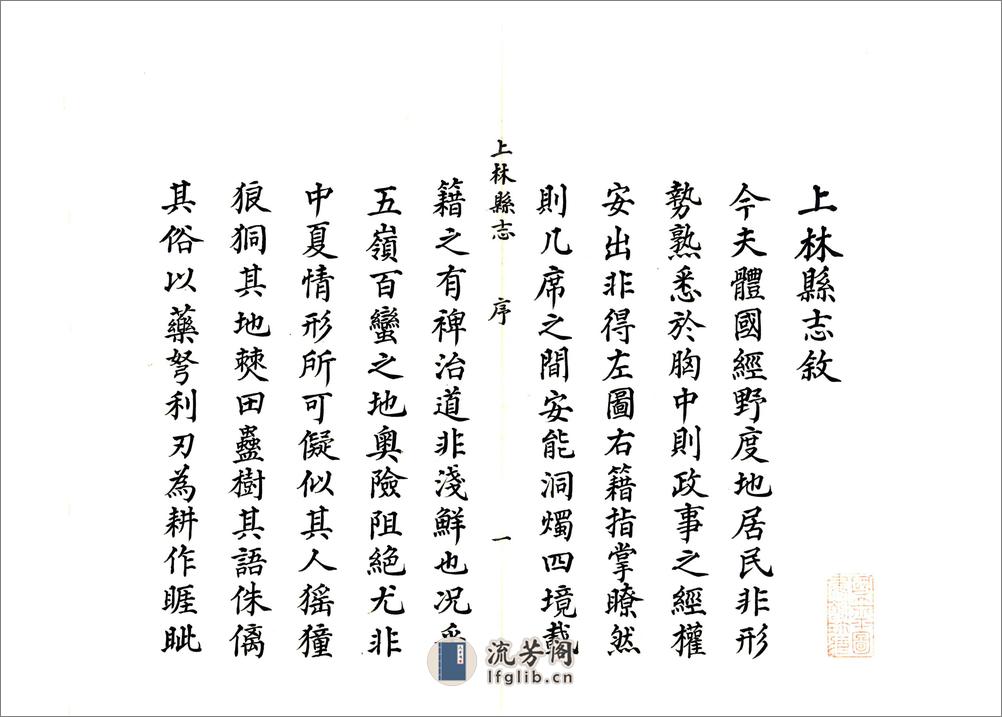 上林縣志敘
今夫體國經野度地居民非形
勢熟悉於胸中則政事之經權
安出非得左圖右籍指掌瞭然
則几席之間安能洞燭四境載
上林縣志 序 一
籍之有裨治道非淺鮮也况乎
五嶺百蠻之地奥險阻絕尤非
中夏情形所可儗似其人猺獞
狼狪其地僰田蠱樹其語侏僪
其俗以藥弩利刃為耕作睚眦
流芳阁
lfglib.cn